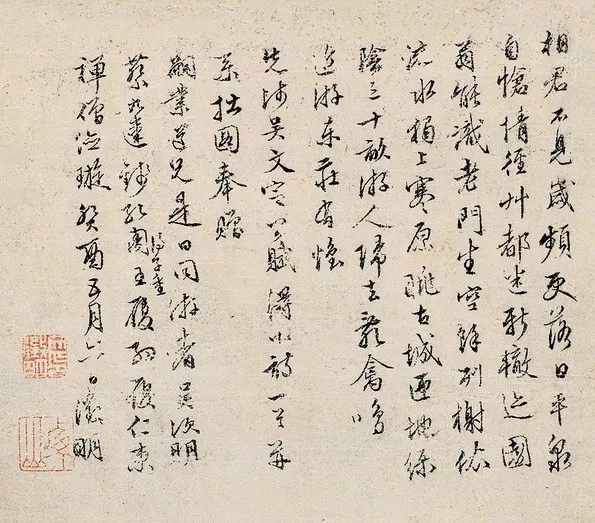 相君不見歲頻更落日平泉
自愴情徑艸都迷新轍迹園
翁能識老門生空餘列榭依
流水獨上寒原眺古城匝地綠
陰三十畝游人歸去亂禽鳴
過游東莊有懷
先師吳文定公賦得小詩一首并
系拙圖奉贈
嗣業尊兄是日同游者吳次明
蔡九逵錢孔周湯子重王履約履仁
禪僧 璇癸酉五月六日徵明